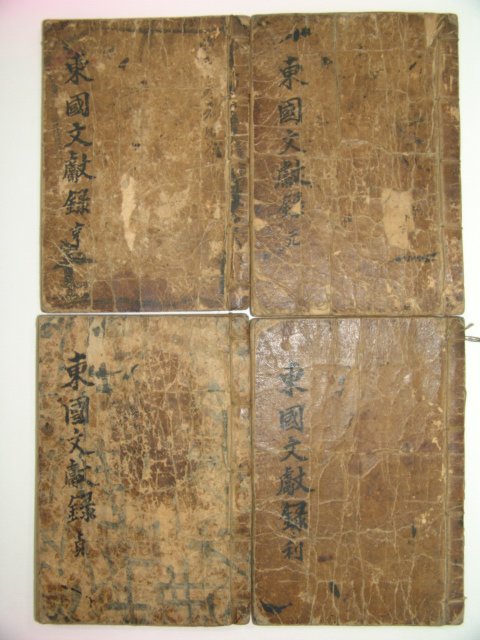 東國文獻錄 元
東國文獻錄 亨
東國文獻錄 利
東國文獻錄 貞